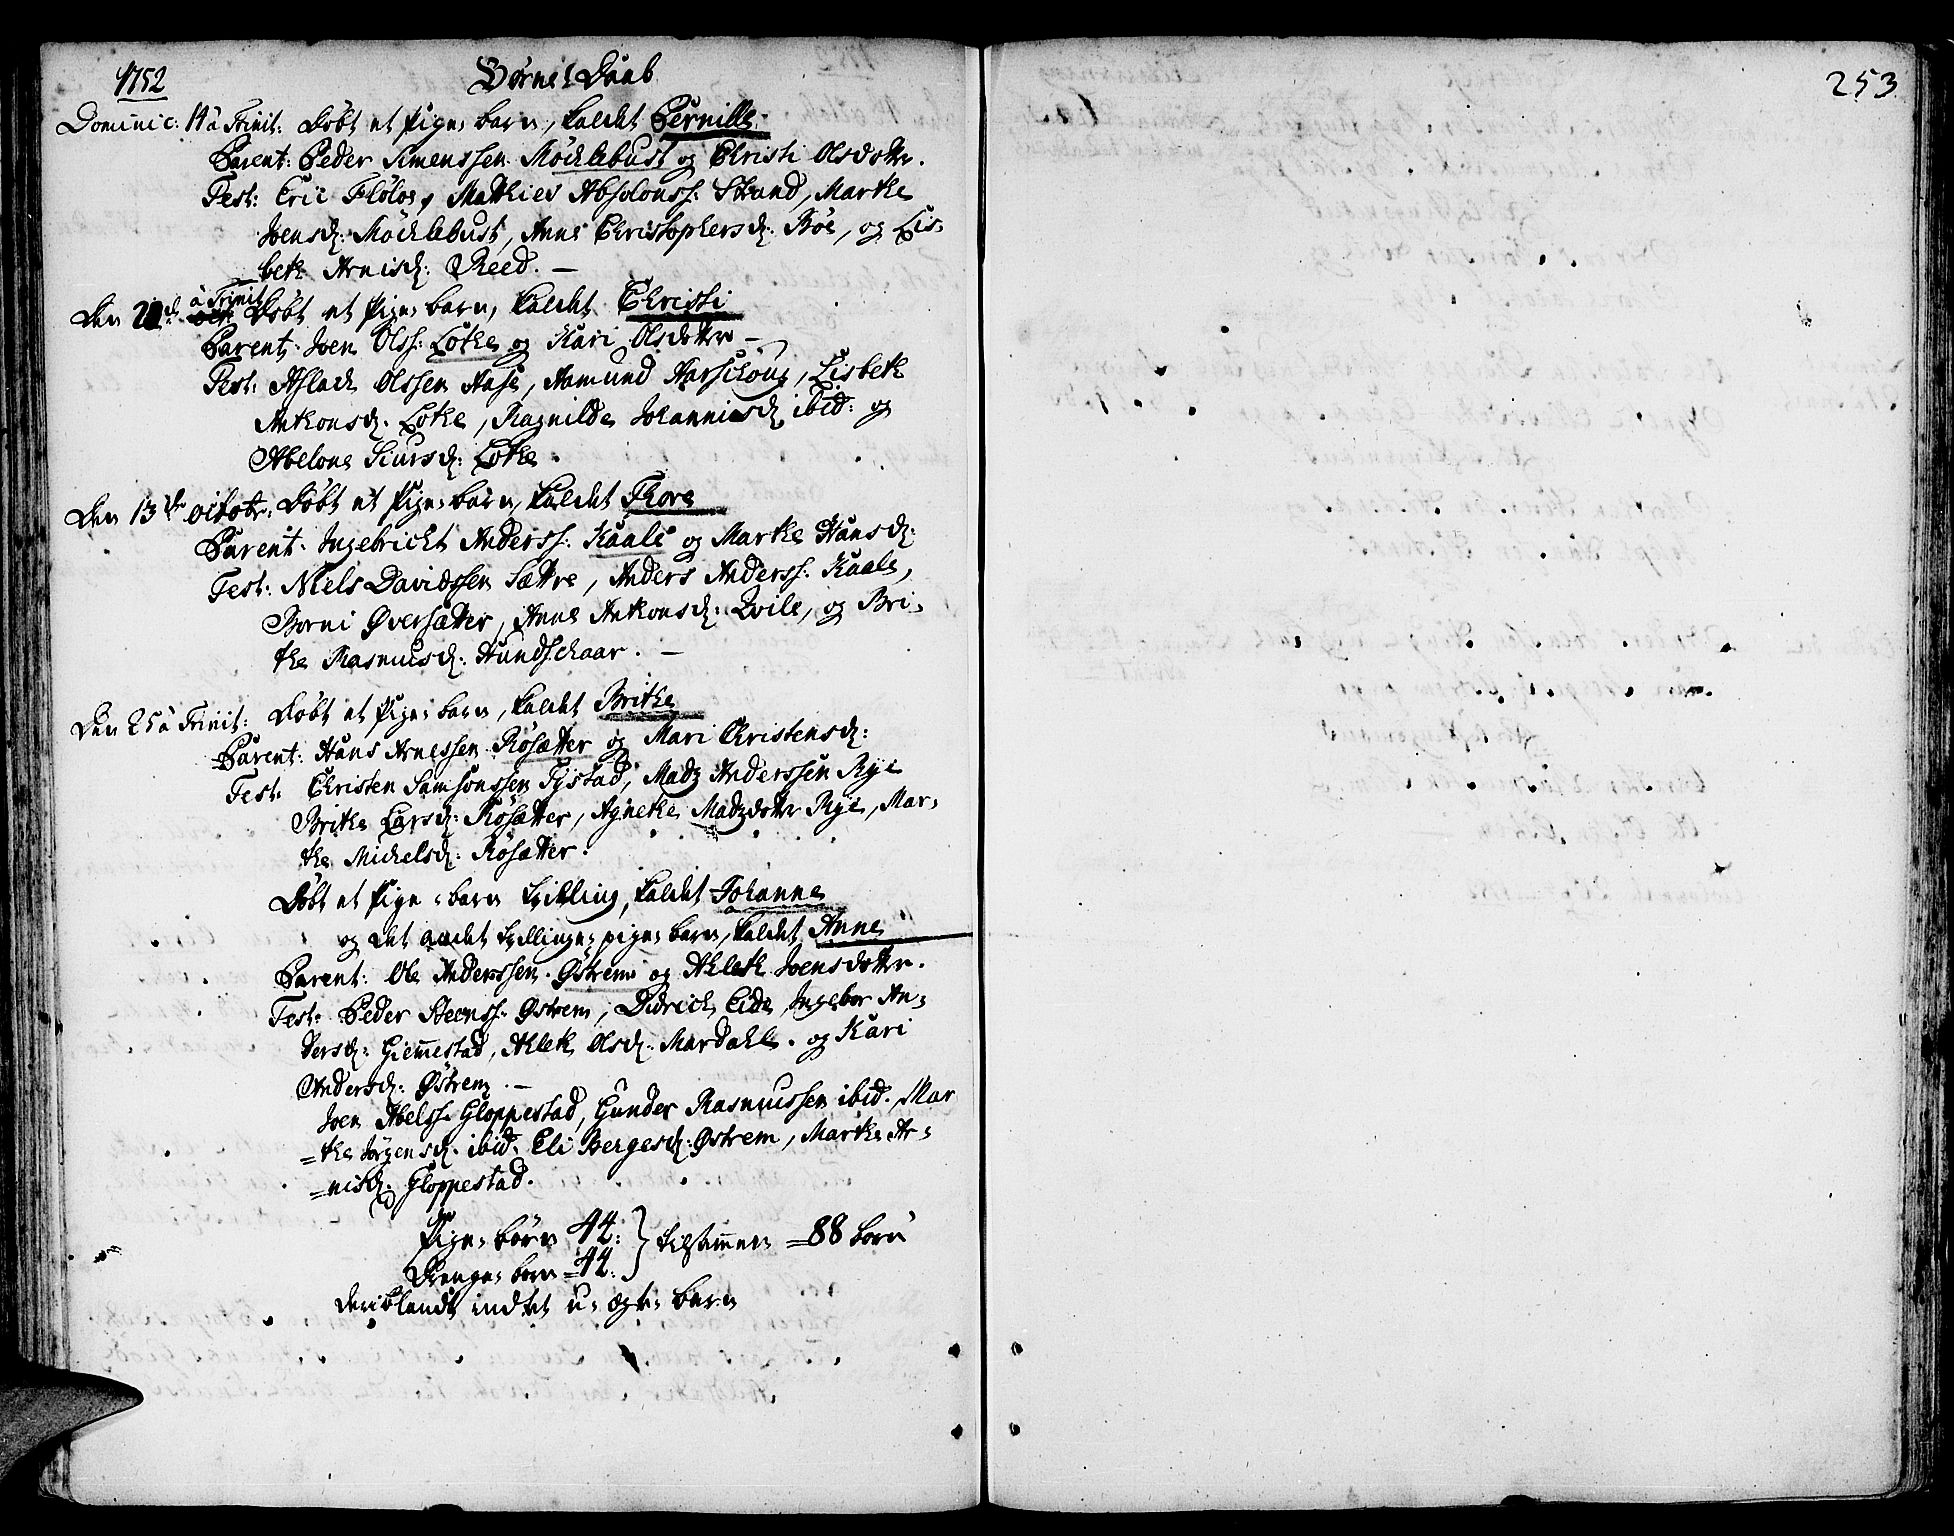 1752 Børne Daab
Dominic: 14 à Trinit: døbt et Pige-barn, kaldet Pernille
Parent: Peder Simenssen Möcklebust og Christi Olsdotter.
Test: Eric Flöloe, Mathies Absolonss: Strand, Marthe
Joensd: Möcklebust, Anne Christophersd: Böe, og Lis-
beth Arnisd: Reed. —
Den à Trinit døbt et Pige-barn, kaldet Christi
Parent: Joen Olss: Lothe og Kari Olsdotter —
Test: Aslach Olssen Aase, Aamund Aarschoug, Lisbeth
Anthonsd: Lothe, Ragnilde Johannisd: ibid: og
Abelone Siursd: Lothe.
Den 13de octobr: Døbt et Pige-barn, kaldet Thore
Parent: Ingebricht Anderss: Kaale og Marthe Hansd:
Test: Niels Davidssen Sættre, Anders Anderss: Kaale,
Borni Øversætter, Anne Anthonsd: Lvile, og Bri-
the Rasmusd: Hundschaar. —
Den 25 à Trinit: Døbt et Pige-barn, kaldet Brithe
Parent: Hans Arnessen Røsætter og Mari Christensd:
Test: Christen Samsonssen Tystad, Madz Anderssen Rye
Brithe Larsd: Røsætter, Agnethe Madzdotter Rye, Mar-
the Michelsd: Røsætter.
Döbt et Pige-barn Tvilling, kaldet Johanne
og det andet tvillinge-pige-barn, kaldet Anne
Parent: Ole Anderssen Østrem og Ahleth Joensdotter.
Test: Peder Steenss: Østrem, Didrich Eide, Ingebor An-
dersd: Giemestad, Ahleth Olsd: Mardahl. og Kari
Andersd: Østrem. —
Joen Abelss: Gloppestad, Gunder Rasmussen ibid. Mar
=the Jørgensd. ibid. Eli Børgesd: Østrem, Marthe Ar-
=nisd: Gloppestad.
Pige-børn 44: } tilsammen =88 børn
Drenge-børn =44:
deriblandt indtet u-ægte-barn
253